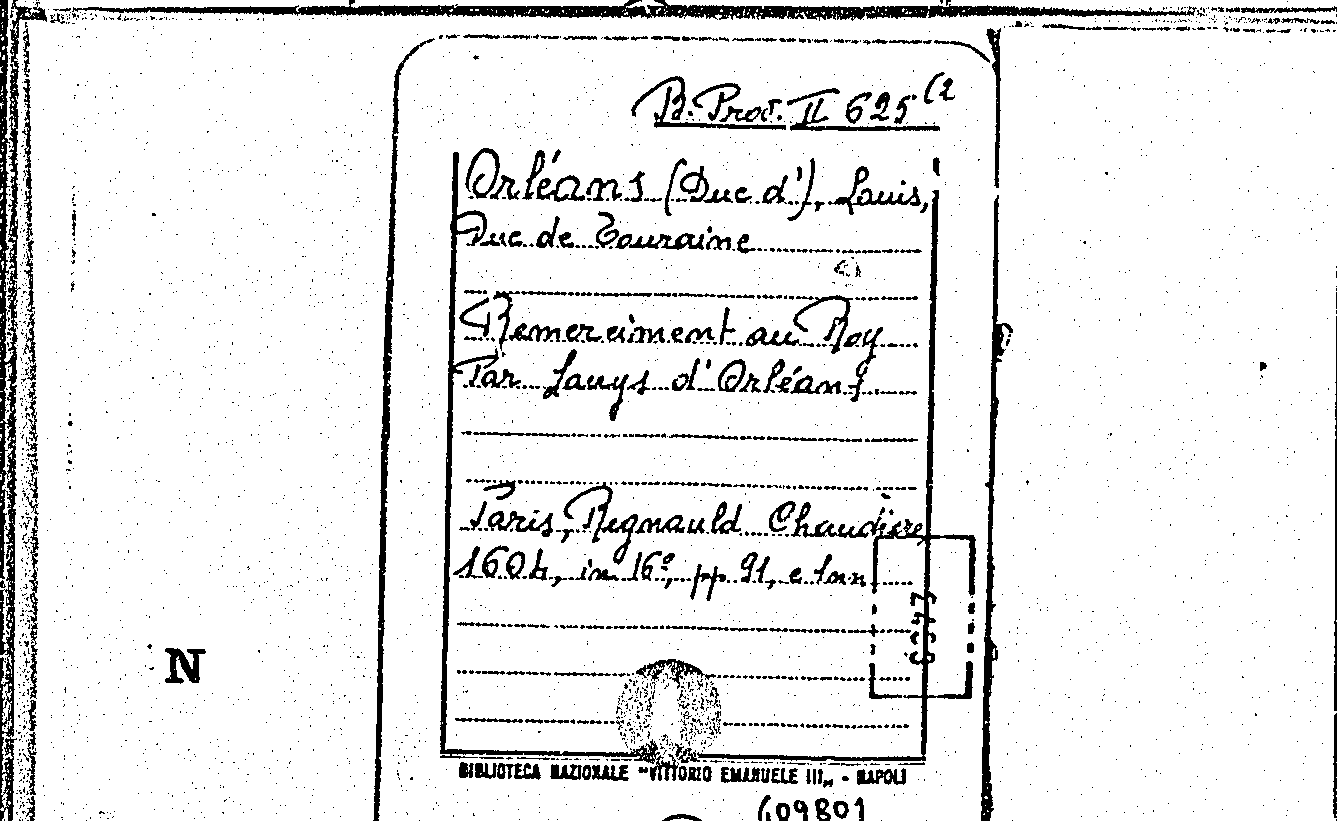 B. Prov. II 625 (2
Orléans (Duc d'), Louis,
Duc de Touraine
Remerciment au Roy
Par Louys d'Orléans
Paris, Regnauld Chaudière
1604, in 16°, pp 91, e
6343
N
BIBLIOTECA NAZIONALE "VITTORIO EMANUELE III„ - NAPOLI
609801